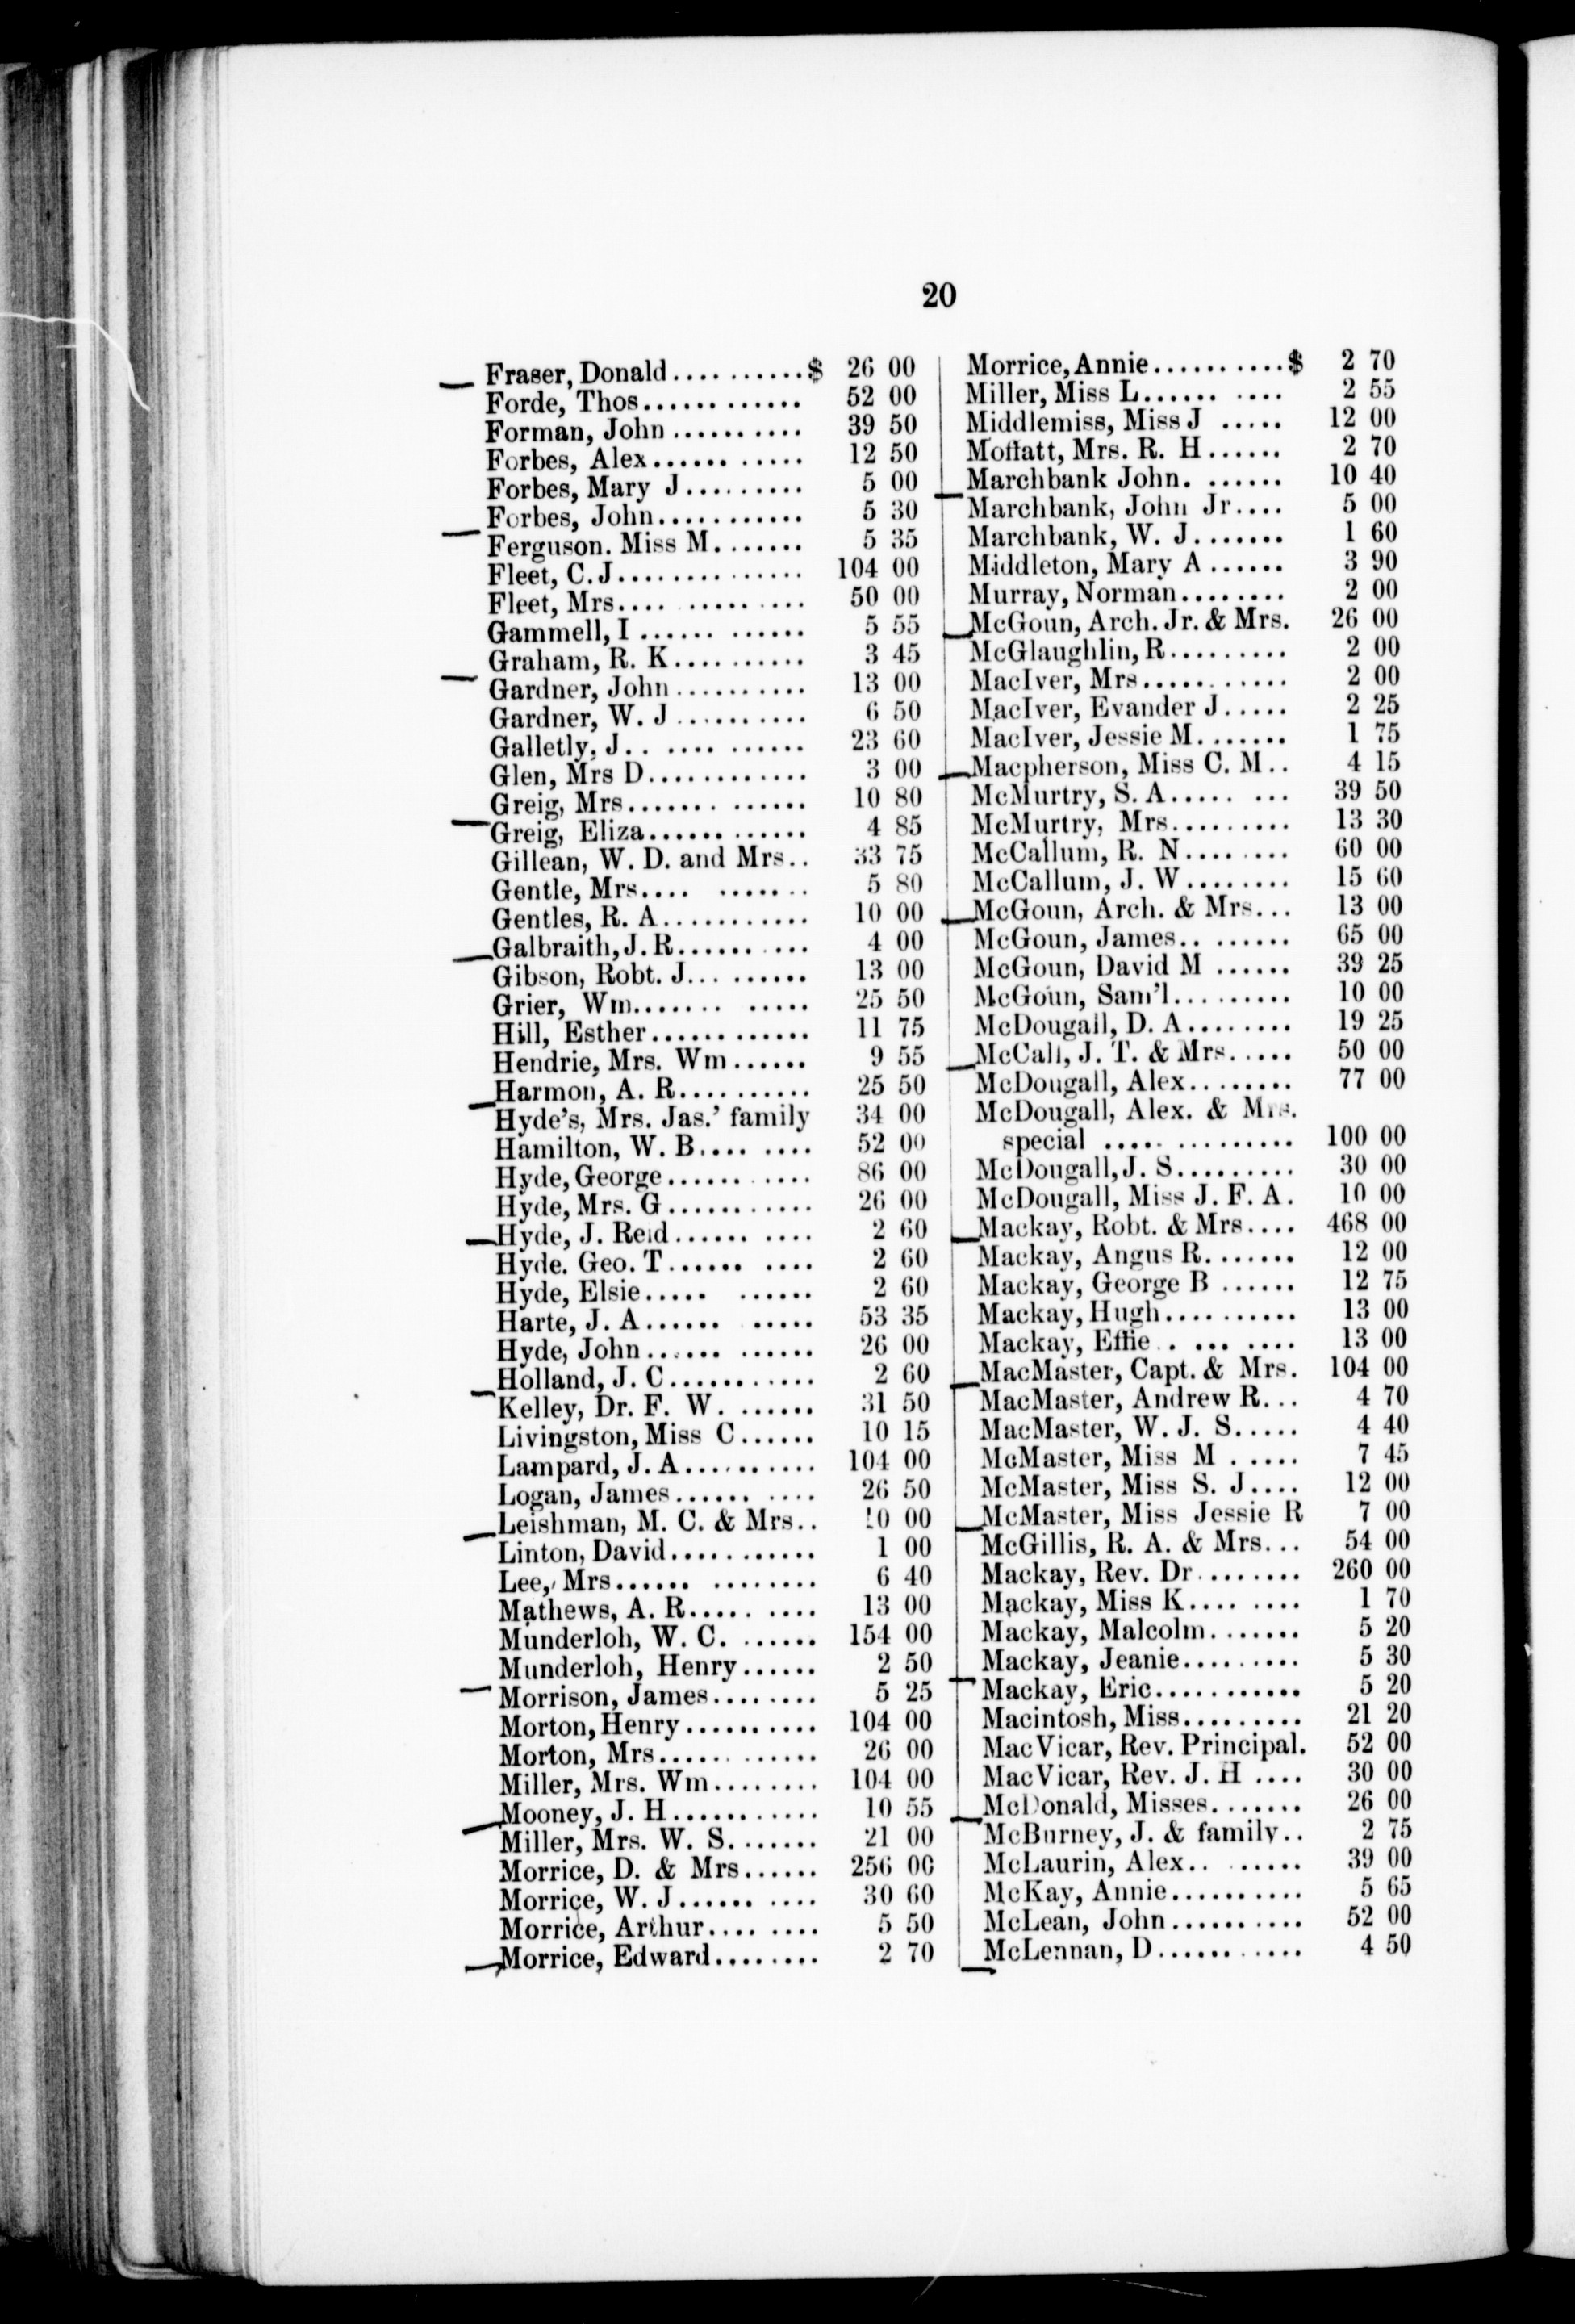 20
Fraser, Donald..........$ 26 00
Forde, Thos............ 52 00
Forman, John .......... 39 50
Forbes, Alex........... 12 50
Forbes, Mary J......... 5 00
Forbes, John........... 5 30
Ferguson. Miss M....... 5 35
Fleet, C. J.............. 104 00
Fleet, Mrs.... .......... 50 00
Gammell, I ...... ...... 5 55
Graham, R. K.......... 3 45
Gardner, John.......... 13 00
Gardner, W. J.......... 6 50
Galletly, J.. .... ...... 23 60
Glen, Mrs D............ 3 00
Greig, Mrs....... ...... 10 80
Greig, Eliza............ 4 85
Gillean, W. D. and Mrs.. 33 75
Gentle, Mrs.... ....... 5 80
Gentles, R. A........... 10 00
Galbraith, J. R.......... 4 00
Gibson, Robt. J... ...... 13 00
Grier, Wm....... ..... 25 50
Hill, Esther............ 11 75
Hendrie, Mrs. Wm...... 9 55
Harmon, A. R.......... 25 50
Hyde's, Mrs. Jas.' family 34 00
Hamilton, W. B.... .... 52 00
Hyde, George........... 86 00
Hyde, Mrs. G........... 26 00
Hyde, J. Reid...... .... 2 60
Hyde. Geo. T...... .... 2 60
Hyde, Elsie..... ...... 2 60
Harte, J. A...... ..... 53 35
Hyde, John...... ...... 26 00
Holland, J. C........... 2 60
Kelley, Dr. F. W. ...... 31 50
Livingston, Miss C...... 10 15
Lampard, J. A.......... 104 00
Logan, James...... .... 26 50
Leishman, M. C. & Mrs.. 0 00
Linton, David........... 1 00
Lee, Mrs...... ........ 6 40
Mathews, A. R..... .... 13 00
Munderloh, W. C. ...... 154 00
Munderloh, Henry...... 2 50
Morrison, James........ 5 25
Morton, Henry.......... 104 00
Morton, Mrs............ 26 00
Miller, Mrs. Wm........ 104 00
Mooney, J. H........... 10 55
Miller, Mrs. W. S....... 21 00
Morrice, D. & Mrs...... 256 00
Morrice, W. J...... .... 30 60
Morrice, Arthur.... .... 5 50
Morrice, Edward........ 2 70
Morrice, Annie..........$ 2 70
Miller, Miss L...... .... 2 55
Middlemiss, Miss J ..... 12 00
Moffatt, Mrs. R. H...... 2 70
Marchbank John. ...... 10 40
Marchbank, John Jr.... 5 00
Marchbank, W. J....... 1 60
Middleton, Mary A ...... 3 90
Murray, Norman........ 2 00
McGoun, Arch. Jr. & Mrs. 26 00
McGlaughlin, R......... 2 00
MacIver, Mrs........... 2 00
MacIver, Evander J..... 2 25
MacIver, Jessie M....... 1 75
Macpherson, Miss C. M.. 4 15
McMurtry, S. A..... ... 39 50
McMurtry, Mrs......... 13 30
McCallum, R. N........ 60 00
McCallum, J. W........ 15 60
McGoun, Arch. & Mrs... 13 00
McGoun, James.. ...... 65 00
McGoun, David M ...... 39 25
McGoun, Sam'l......... 10 00
McDougall, D. A........ 19 25
McCall, J. T. & Mrs..... 50 00
McDougall, Alex........ 77 00
McDougall, Alex. & Mrs.
special ..... ......... 100 00
McDougall, J. S......... 30 00
McDougall, Miss J. F. A. 10 00
Mackay, Robt. & Mrs.... 468 00
Mackay, Angus R....... 12 00
Mackay, George B ...... 12 75
Mackay, Hugh.......... 13 00
Mackay, Effie. . ... .... 13 00
MacMaster, Capt. & Mrs. 104 00
MacMaster, Andrew R... 4 70
MacMaster, W. J. S..... 4 40
McMaster, Miss M ..... 7 45
McMaster, Miss S. J.... 12 00
McMaster, Miss Jessie R 7 00
McGillis, R. A. & Mrs... 54 00
Mackay, Rev. Dr........ 260 00
Mackay, Miss K........ 1 70
Mackay, Malcolm....... 5 20
Mackay, Jeanie......... 5 30
Mackay, Eric........... 5 20
Macintosh, Miss......... 21 20
MacVicar, Rev. Principal. 52 00
MacVicar, Rev. J. H .... 30 00
McDonald, Misses....... 26 00
McBurney, J. & family.. 2 75
McLaurin, Alex.. ...... 39 00
McKay, Annie.......... 5 65
McLean, John.......... 52 00
McLennan, D........... 4 50